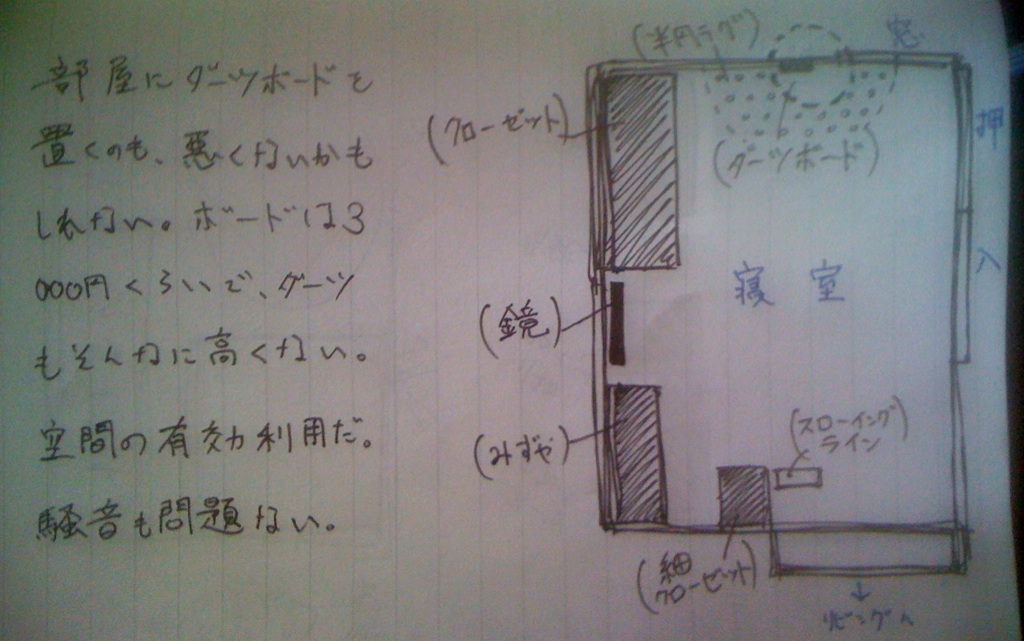 部屋にダーツボードを
置くのも、悪くないかも
しれない。ボードは3
000円くらいで、ダーツ
もそんなに高くない。
空間の有効利用だ。
騒音も問題ない。
(半円ラグ)
窓
(クローゼット)
(ダーツボード)
押入
寝室
(鏡)
(スローイング
ライン)
(みずや)
(細
クローゼット)
リビングへ